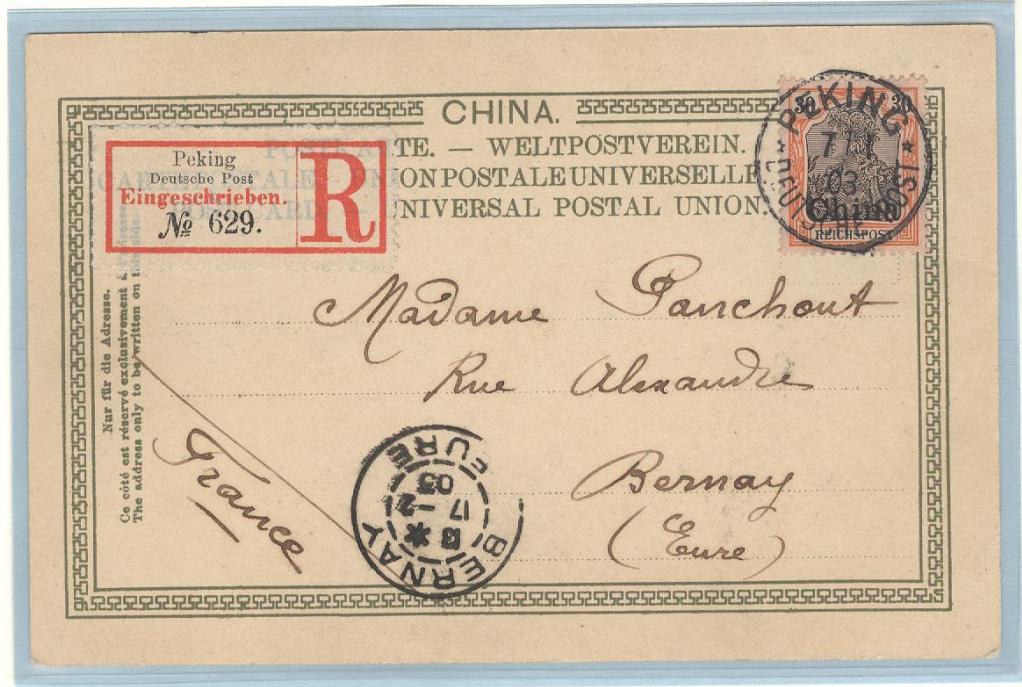 CHINA.
POSTKARTE. — WELTPOSTVEREIN.
CARTE POSTALE — UNION POSTALE UNIVERSELLE
POST CARD — UNIVERSAL POSTAL UNION.
Peking
Deutsche Post
Eingeschrieben.
№ 629.
R
30 30
China
REICHSPOST
PEKING
03
DEUTSCHE POST
Nur für die Adresse.
Ce côté est réservé exclusivement à l'adresse
The address only to be written on this side.
Madame Panchout
Rue Alexandre
Bernay
(Eure)
France
BERNAY
17 -2
03
EURE